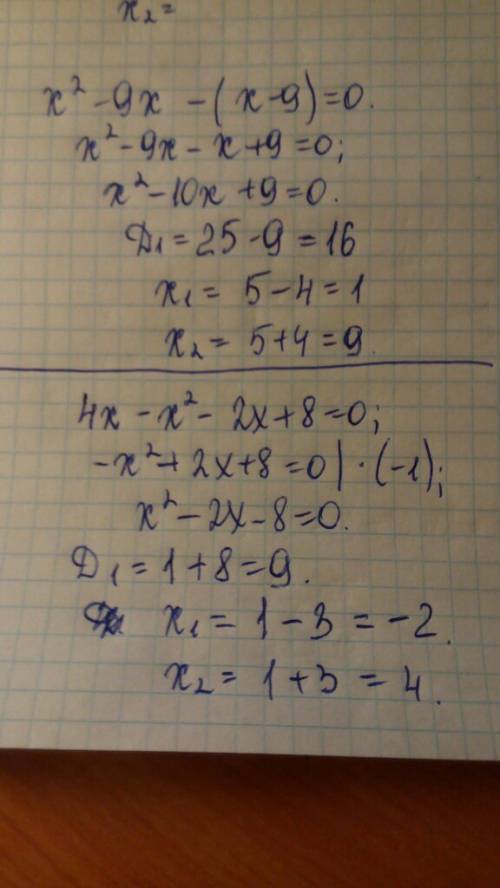 x₂ =
x² - 9x - (x - 9) = 0.
x² - 9x - x + 9 = 0;
x² - 10x + 9 = 0.
D₁ = 25 - 9 = 16
x₁ = 5 - 4 = 1
x₂ = 5 + 4 = 9
4x - x² - 2x + 8 = 0;
-x² + 2x + 8 = 0 | · (-1);
x² - 2x - 8 = 0.
D₁ = 1 + 8 = 9.
x₁ = 1 - 3 = -2.
x₂ = 1 + 3 = 4.